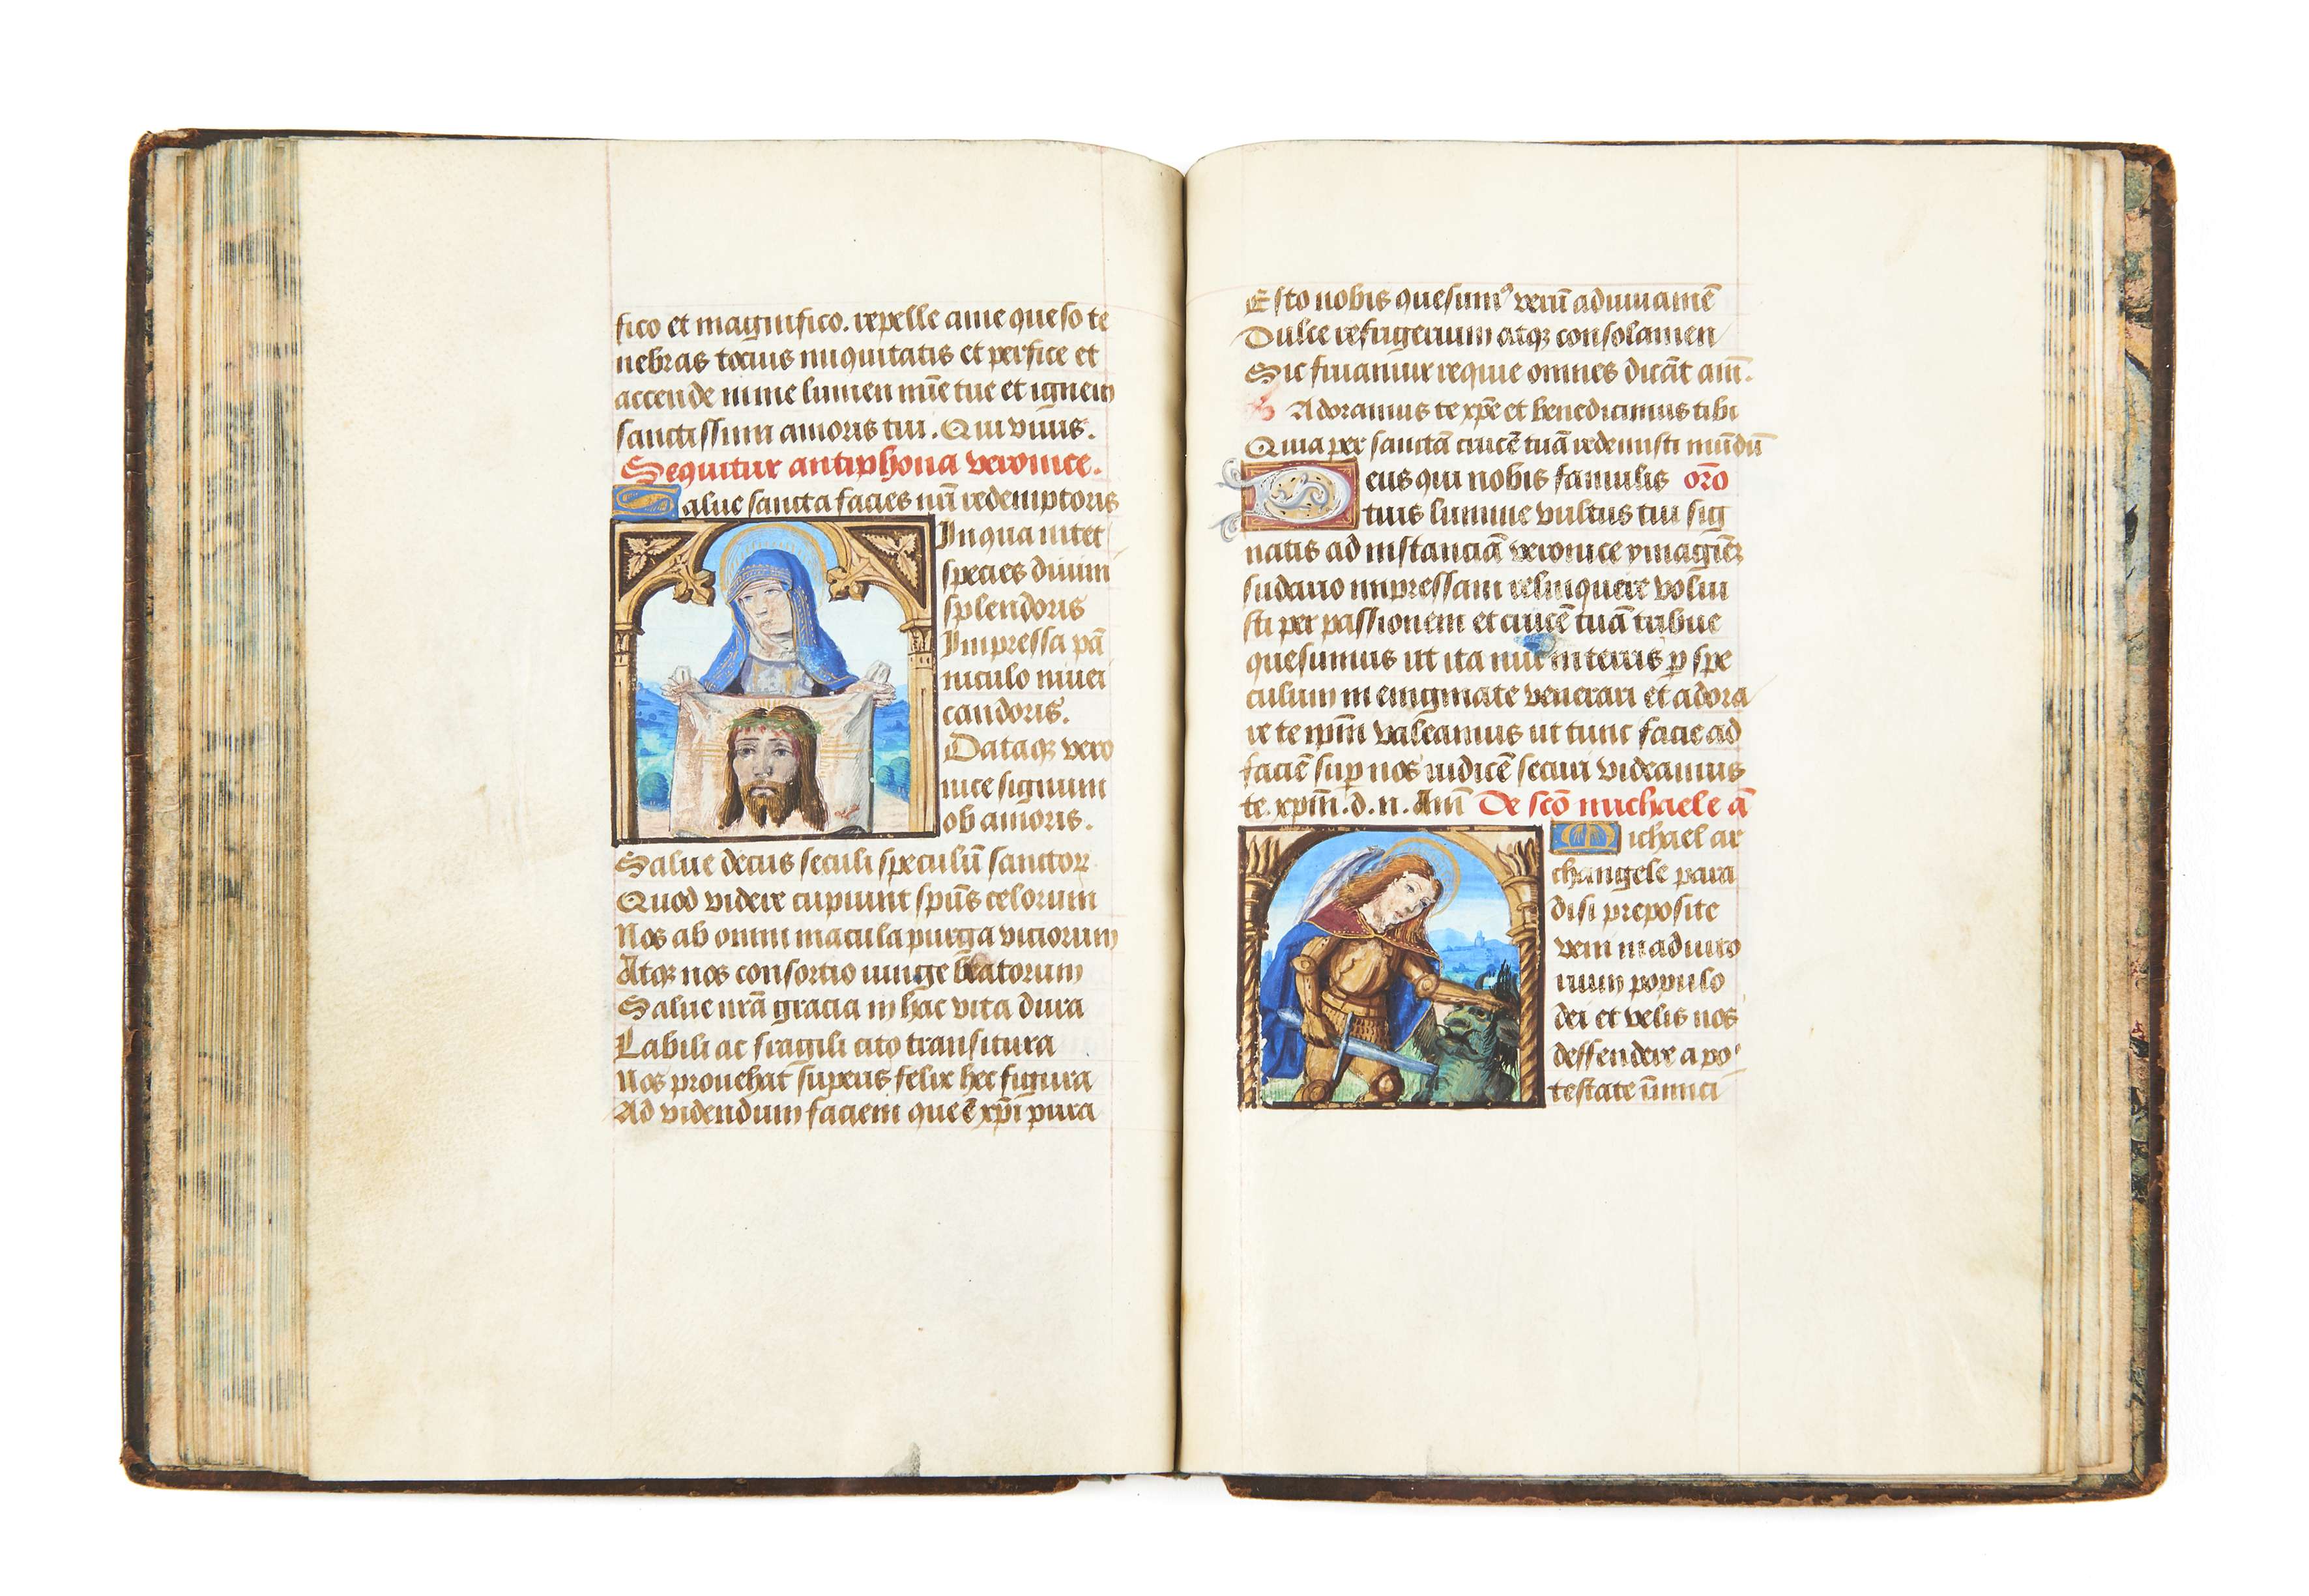 fico et magnifico. repelle a me queso te
nebras tocius iniquitatis et perfice et
accende in me lumen mẽte tue et ignem
sanctissimi amoris tui. Qui viuis.
Sequitur antiphona veronice.
Salue sancta facies nr̃i redemptoris
In qua nitet
species diuini
splendoris
Impressa pã
niculo niuei
candoris.
Dataqꝫ vero
nice signum
ob amoris.
Salue decus seculi speculũ sanctoꝝ
Quod videre cupiunt spũs celorum
Nos ab omni macula purga viciorum
Atqꝫ nos consortio iunge beatorum
Salue nrã gracia in hac vita dura
Labili ac fragili cito transitura
Nos prouehat superis felix hec figura
Ad videndum faciem que ẽ xp̃i pura
Esto nobis quesumꝰ verũ adiuuamẽ
Dulce refrigerium atqꝫ consolamen
Sic fruamur requie omnes dicãt am̃.
Adoramus te xpẽ et benedicimus tibi
Quia per sanctã crucẽ tuã redemisti mũdũ
Deus qui nobis famulis orõ
tuis lumine vultus tui sig
natis ad instanciã veronice ymaginẽ
sudario impressam relinquere volui
sti per passionem et crucẽ tuã tribue
quesumus ut ita nũc in terris ꝑ spe
culum in enigmate venerari et adora
re te ip̃m valeamus ut tunc facie ad
faciẽ suꝑ nos iudicẽ securi videamus
te xp̃m. d. n. Am̃ De scõ michaele ã
Michael ar
changele para
disi preposite
veni in adiuto
rium populo
dei et velis nos
deffendere a po
testate inimici